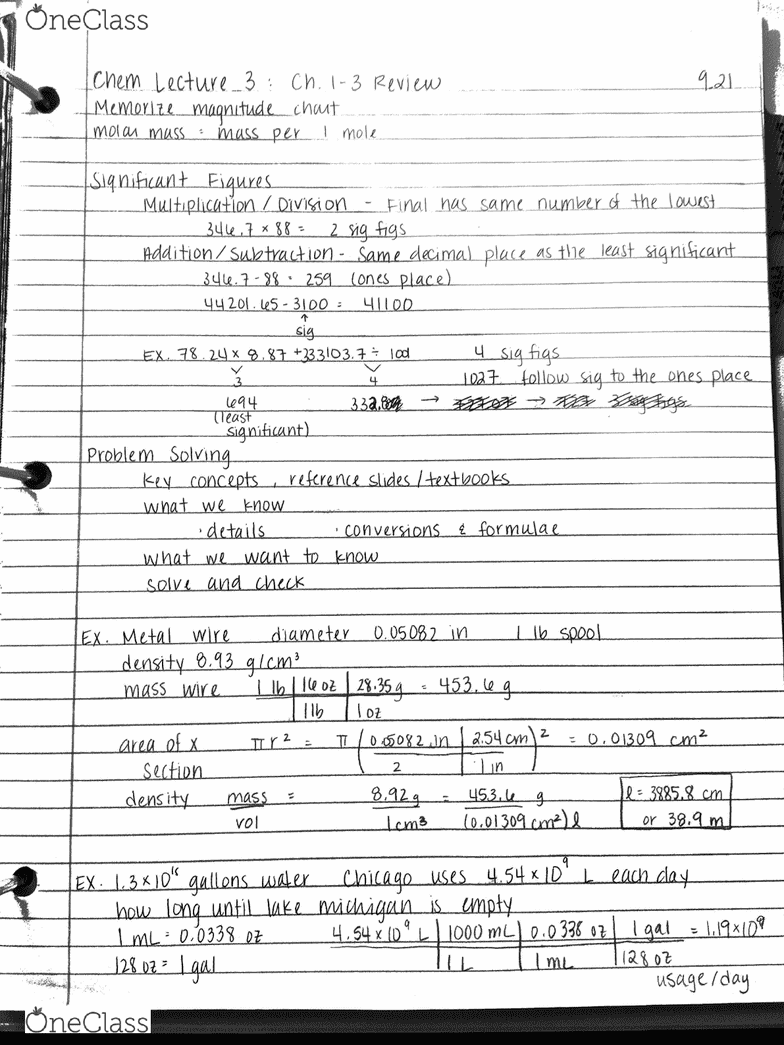 OneClass
Chem Lecture 3 : Ch. 1-3 Review 9.21
Memorize magnitude chart
molar mass = mass per 1 mole
Significant Figures
Multiplication / Division - Final has same number of the lowest
346.7 × 88 = 2 sig figs
Addition / Subtraction - Same decimal place as the least significant
346.7 - 88 = 259 (ones place)
44201.65 - 3100 = 41100
↑
sig
EX. 78.24 × 8.87 + 333103.7 ÷ 1001 4 sig figs
3 4 1027 follow sig to the ones place
694 → →
(least
significant)
Problem Solving
key concepts, reference slides / textbooks
what we know
· details · conversions & formulae
what we want to know
solve and check
EX. Metal wire diameter 0.05082 in 1 lb spool
density 8.93 g/cm³
mass wire 1 lb | 16 oz | 28.35 g = 453.6 g
1 lb | 1 oz
area of x πr² = π ( 0.05082 in | 2.54 cm )² = 0.01309 cm²
section 2 | 1 in
density mass = 8.92 g = 453.6 g l = 3885.8 cm
vol 1 cm³ (0.01309 cm²) l or 38.9 m
EX. 1.3 × 10¹⁵ gallons water Chicago uses 4.54 × 10⁹ L each day
how long until lake michigan is empty
1 mL = 0.0338 oz 4.54 × 10⁹ L | 1000 mL | 0.0338 oz | 1 gal = 1.19 × 10⁹
128 oz = 1 gal 1 L | 1 mL | 128 oz
usage / day
OneClass